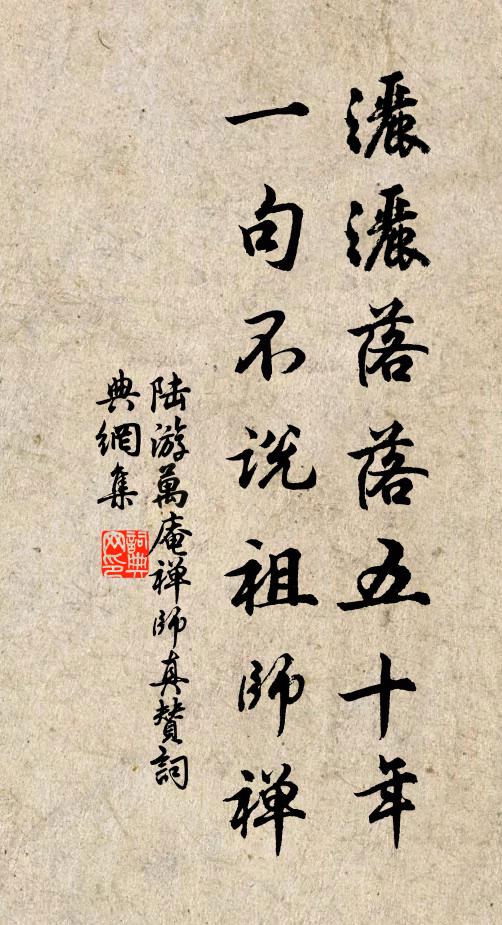 灑灑落落五十年
一句不說祖師禅
陆游萬庵禅師真賛詞
典網集
詞典網印